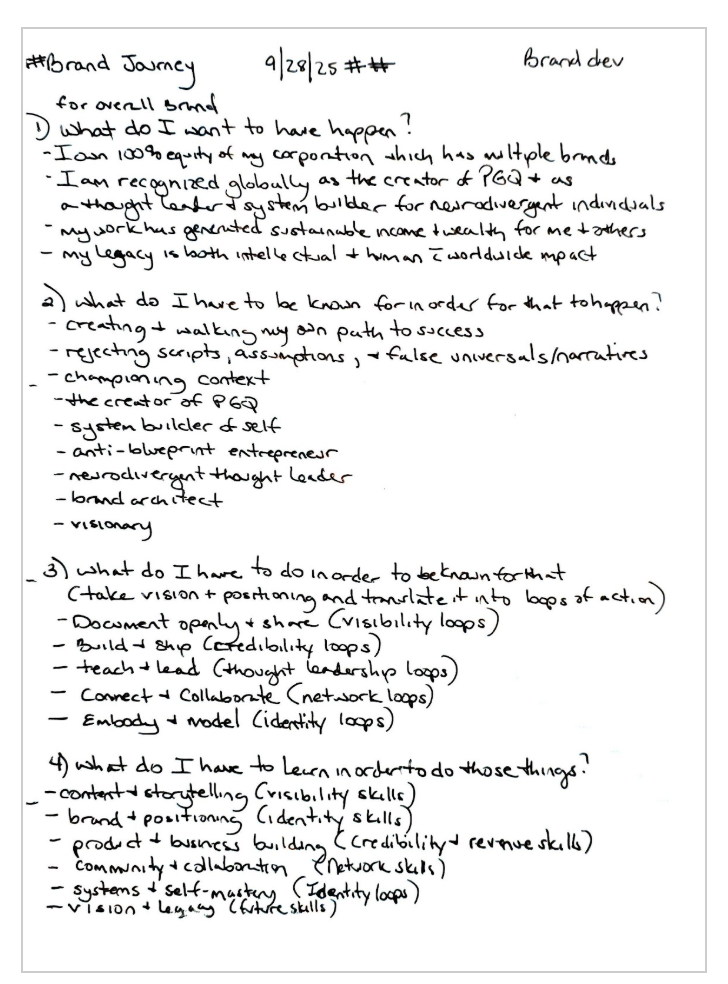 #Brand Journey 9/28/25 ## Brand dev
for overall Brand
1) what do I want to have happen?
- I own 100% equity of my corporation which has multiple brands
- I am recognized globally as the creator of PGQ + as
a thought leader + system builder for neurodivergent individuals
- my work has generated sustainable income + wealth for me + others
- my legacy is both intellectual + human c̄ worldwide impact
2) what do I have to be known for in order for that to happen?
- creating + walking my own path to success
- rejecting scripts, assumptions, + false universals/narratives
- championing context
- the creator of PGQ
- system builder of self
- anti-blueprint entrepreneur
- neurodivergent thought leader
- brand architect
- visionary
3) what do I have to do in order to be known for that
(take vision + positioning and translate it into loops of action)
- Document openly + share (visibility loops)
- Build + ship (credibility loops)
- teach + lead (thought leadership loops)
- Connect + Collaborate (network loops)
- Embody + model (identity loops)
4) what do I have to learn in order to do those things?
- content + storytelling (visibility skills)
- brand + positioning (identity skills)
- product + business building (credibility + revenue skills)
- community + collaboration (network skills)
- systems + self-mastery (Identity loops)
- vision + legacy (future skills)